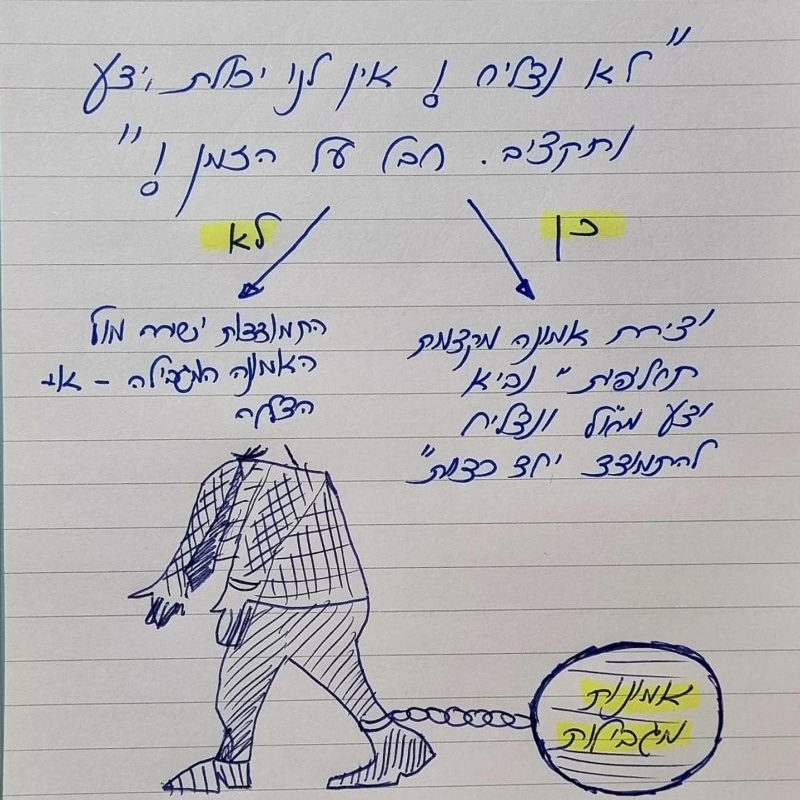 "לא נצליח! אין לנו יכולת, ידע
ותקציב. חבל על הזמן!"
כן
לא
יצירת אמונה מקדמת
תחליפית "נביא
ידע מחו"ל ונצליח
להתמודד יחד כצוות"
התמודדות ישירה מול
האמונה המגבילה - אי
הצדקה
אמונות
מגבילות